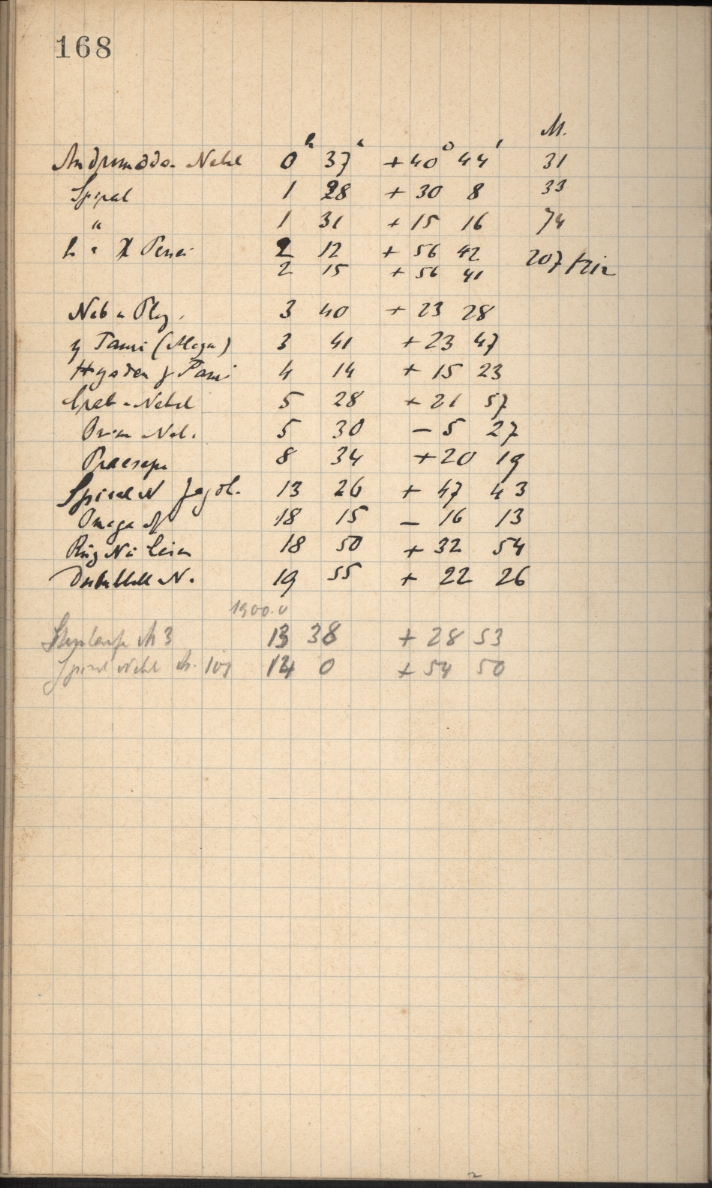 168
M.
Andromeda-Nebel 0 h 37 + 40 ° 44 ' 31
Spiral 1 28 + 30 8 33
" 1 31 + 15 16 74
h u χ Persei 2 12 + 56 42 207
2 15 + 56 41
Neb u Plej. 3 40 + 23 28
η Tauri (Alcyon) 3 41 + 23 47
Hyaden γ Tauri 4 14 + 15 23
Crab-Nebel 5 28 + 21 57
Orion Neb. 5 30 - 5 27
Praesepe 8 34 + 20 19
Spiral N Jagdh. 13 26 + 47 43
Omega N 18 15 - 16 13
Ring N i Leier 18 50 + 32 54
Dumbbell N. 19 55 + 22 26
1900.0
M 3 13 38 + 28 53
Spiral Nebel M. 101 14 0 + 54 50